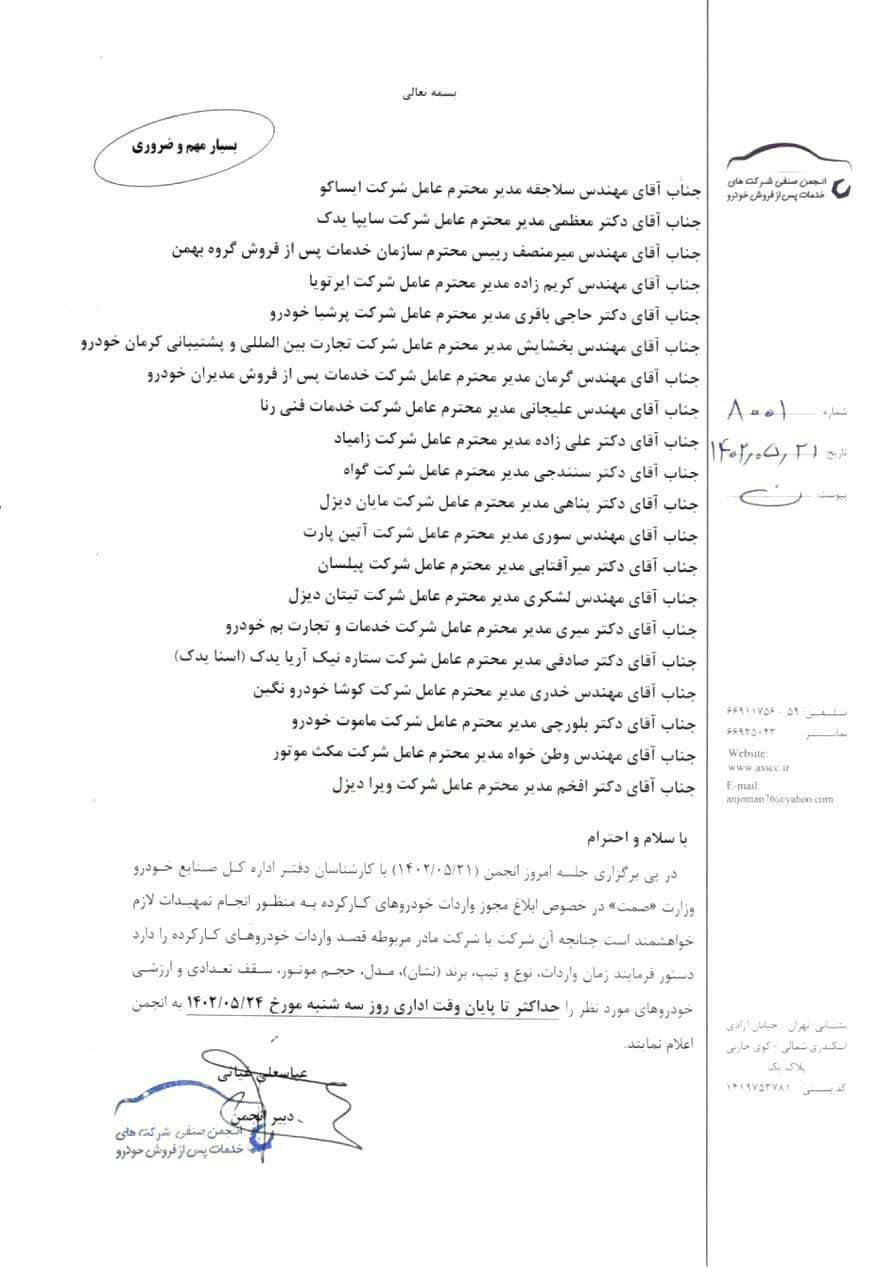 بسمه تعالی
بسیار مهم و ضروری
انجمن صنفی شرکت های
خدمات پس از فروش خودرو
جناب آقای مهندس سلاجقه مدیر محترم عامل شرکت ایساکو
جناب آقای دکتر معظمی مدیر محترم عامل شرکت سایپا یدک
جناب آقای مهندس میرمنصف رییس محترم سازمان خدمات پس از فروش گروه بهمن
جناب آقای مهندس کریم زاده مدیر محترم عامل شرکت ایرتویا
جناب آقای دکتر حاجی باقری مدیر محترم عامل شرکت پرشیا خودرو
جناب آقای مهندس بخشایش مدیر محترم عامل شرکت تجارت بین المللی و پشتیبانی کرمان خودرو
جناب آقای مهندس گرمان مدیر محترم عامل شرکت خدمات پس از فروش مدیران خودرو
جناب آقای مهندس علیجانی مدیر محترم عامل شرکت خدمات فنی رنا
جناب آقای دکتر علی زاده مدیر محترم عامل شرکت زامیاد
جناب آقای دکتر سنندجی مدیر محترم عامل شرکت گواه
جناب آقای دکتر پناهی مدیر محترم عامل شرکت مایان دیزل
جناب آقای مهندس سوری مدیر محترم عامل شرکت آتین پارت
جناب آقای دکتر میرآفتابی مدیر محترم عامل شرکت پیلسان
جناب آقای مهندس لشکری مدیر محترم عامل شرکت تیتان دیزل
جناب آقای دکتر میری مدیر محترم عامل شرکت خدمات و تجارت بم خودرو
جناب آقای دکتر صادقی مدیر محترم عامل شرکت ستاره نیک آریا یدک (اسنا یدک)
جناب آقای مهندس خدری مدیر محترم عامل شرکت کوشا خودرو نگین
جناب آقای دکتر بلورچی مدیر محترم عامل شرکت ماموت خودرو
جناب آقای مهندس وطن خواه مدیر محترم عامل شرکت مکث موتور
جناب آقای دکتر افخم مدیر محترم عامل شرکت ویرا دیزل
با سلام و احترام
در پی برگزاری جلسه امروز انجمن (۱۴۰۲/۰۵/۲۱) با کارشناسان دفتر اداره کل صنایع خودرو
وزارت «صمت» در خصوص ابلاغ مجوز واردات خودروهای کارکرده به منظور انجام تمهیدات لازم
خواهشمند است چنانچه آن شرکت یا شرکت مادر مربوطه قصد واردات خودروهای کارکرده را دارد
دستور فرمایند زمان واردات، نوع و تیپ، برند (نشان)، مدل، حجم موتور، سقف تعدادی و ارزشی
خودروهای مورد نظر را حداکثر تا پایان وقت اداری روز سه شنبه مورخ ۱۴۰۲/۰۵/۲۴ به انجمن
اعلام نمایند.
عباسعلی غیاثی
دبیر انجمن
انجمن صنفی شرکت های
خدمات پس از فروش خودرو
شماره ۸۰۰۱
تاریخ ۱۴۰۲,۰۵,۲۱
پیوست
تلفن: ۵۹ - ۶۶۹۱۱۷۵۶
نمابر ۶۶۹۲۵۰۴۳
Website:
www.asscc.ir
E-mail:
anjoman76@yahoo.com
نشانی: تهران - خیابان آزادی
اسکندری شمالی - کوی
پلاک یک
کد پستی: ۱۴۱۹۷۵۳۷۸۱